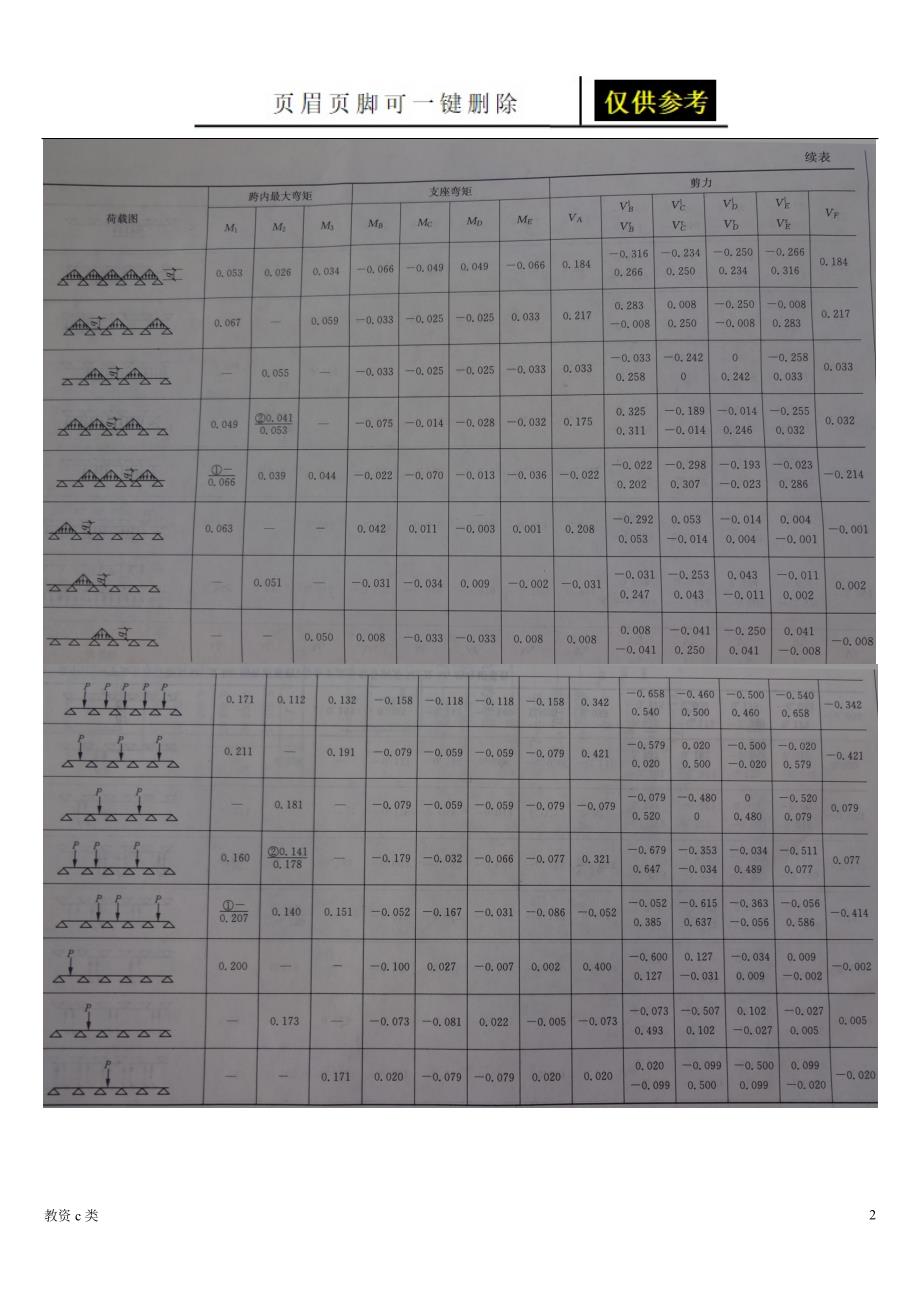 页眉页脚可一键删除 仅供参考
续表
荷载图 跨内最大弯矩 支座弯矩 剪力
M₁ M₂ M₃ M_B M_C M_D M_E V_A V_B^l V_C^l V_D^l V_E^l V_F
V_B^r V_C^r V_D^r V_E^r
0.053 0.026 0.034 -0.066 -0.049 0.049 -0.066 0.184 -0.316 -0.234 -0.250 -0.266 0.184
0.266 0.250 0.234 0.316
0.067 — 0.059 -0.033 -0.025 -0.025 0.033 0.217 0.283 0.008 -0.250 -0.008 0.217
-0.008 0.250 -0.008 0.283
— 0.055 — -0.033 -0.025 -0.025 -0.033 0.033 -0.033 -0.242 0 -0.258 0.033
0.258 0 0.242 0.033
0.049 ②0.041 — -0.075 -0.014 -0.028 -0.032 0.175 0.325 -0.189 -0.014 -0.255 0.032
0.053 0.311 -0.014 0.246 0.032
①— 0.039 0.044 -0.022 -0.070 -0.013 -0.036 -0.022 -0.022 -0.298 -0.193 -0.023 -0.214
0.066 0.202 0.307 -0.023 0.286
0.063 — — 0.042 0.011 -0.003 0.001 0.208 -0.292 0.053 -0.014 0.004 -0.001
0.053 -0.014 0.004 -0.001
— 0.051 — -0.031 -0.034 0.009 -0.002 -0.031 -0.031 -0.253 0.043 -0.011 0.002
0.247 0.043 -0.011 0.002
— — 0.050 0.008 -0.033 -0.033 0.008 0.008 0.008 -0.041 -0.250 0.041 -0.008
-0.041 0.250 0.041 -0.008
P P P P P 0.171 0.112 0.132 -0.158 -0.118 -0.118 -0.158 0.342 -0.658 -0.460 -0.500 -0.540 -0.342
0.540 0.500 0.460 0.658
P P P 0.211 — 0.191 -0.079 -0.059 -0.059 -0.079 0.421 -0.579 0.020 -0.500 -0.020 -0.421
0.020 0.500 -0.020 0.579
P P — 0.181 — -0.079 -0.059 -0.059 -0.079 -0.079 -0.079 -0.480 0 -0.520 0.079
0.520 0 0.480 0.079
P P P 0.160 ②0.141 — -0.179 -0.032 -0.066 -0.077 0.321 -0.679 -0.353 -0.034 -0.511 0.077
0.178 0.647 -0.034 0.489 0.077
P P P ①— 0.140 0.151 -0.052 -0.167 -0.031 -0.086 -0.052 -0.052 -0.615 -0.363 -0.056 -0.414
0.207 0.385 0.637 -0.056 0.586
P 0.200 — — -0.100 0.027 -0.007 0.002 0.400 -0.600 0.127 -0.034 0.009 -0.002
0.127 -0.031 0.009 -0.002
P — 0.173 — -0.073 -0.081 0.022 -0.005 -0.073 -0.073 -0.507 0.102 -0.027 0.005
0.493 0.102 -0.027 0.005
P — — 0.171 0.020 -0.079 -0.079 0.020 0.020 0.020 -0.099 -0.500 0.099 -0.020
-0.099 0.500 0.099 -0.020
教资 c 类 2